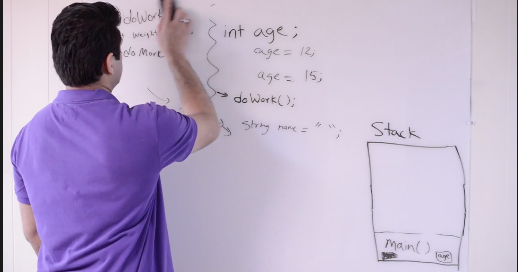 doWork
weight
doMore
int age;
age = 12;
age = 15;
doWork();
String name = " ";
Stack
Main()
age